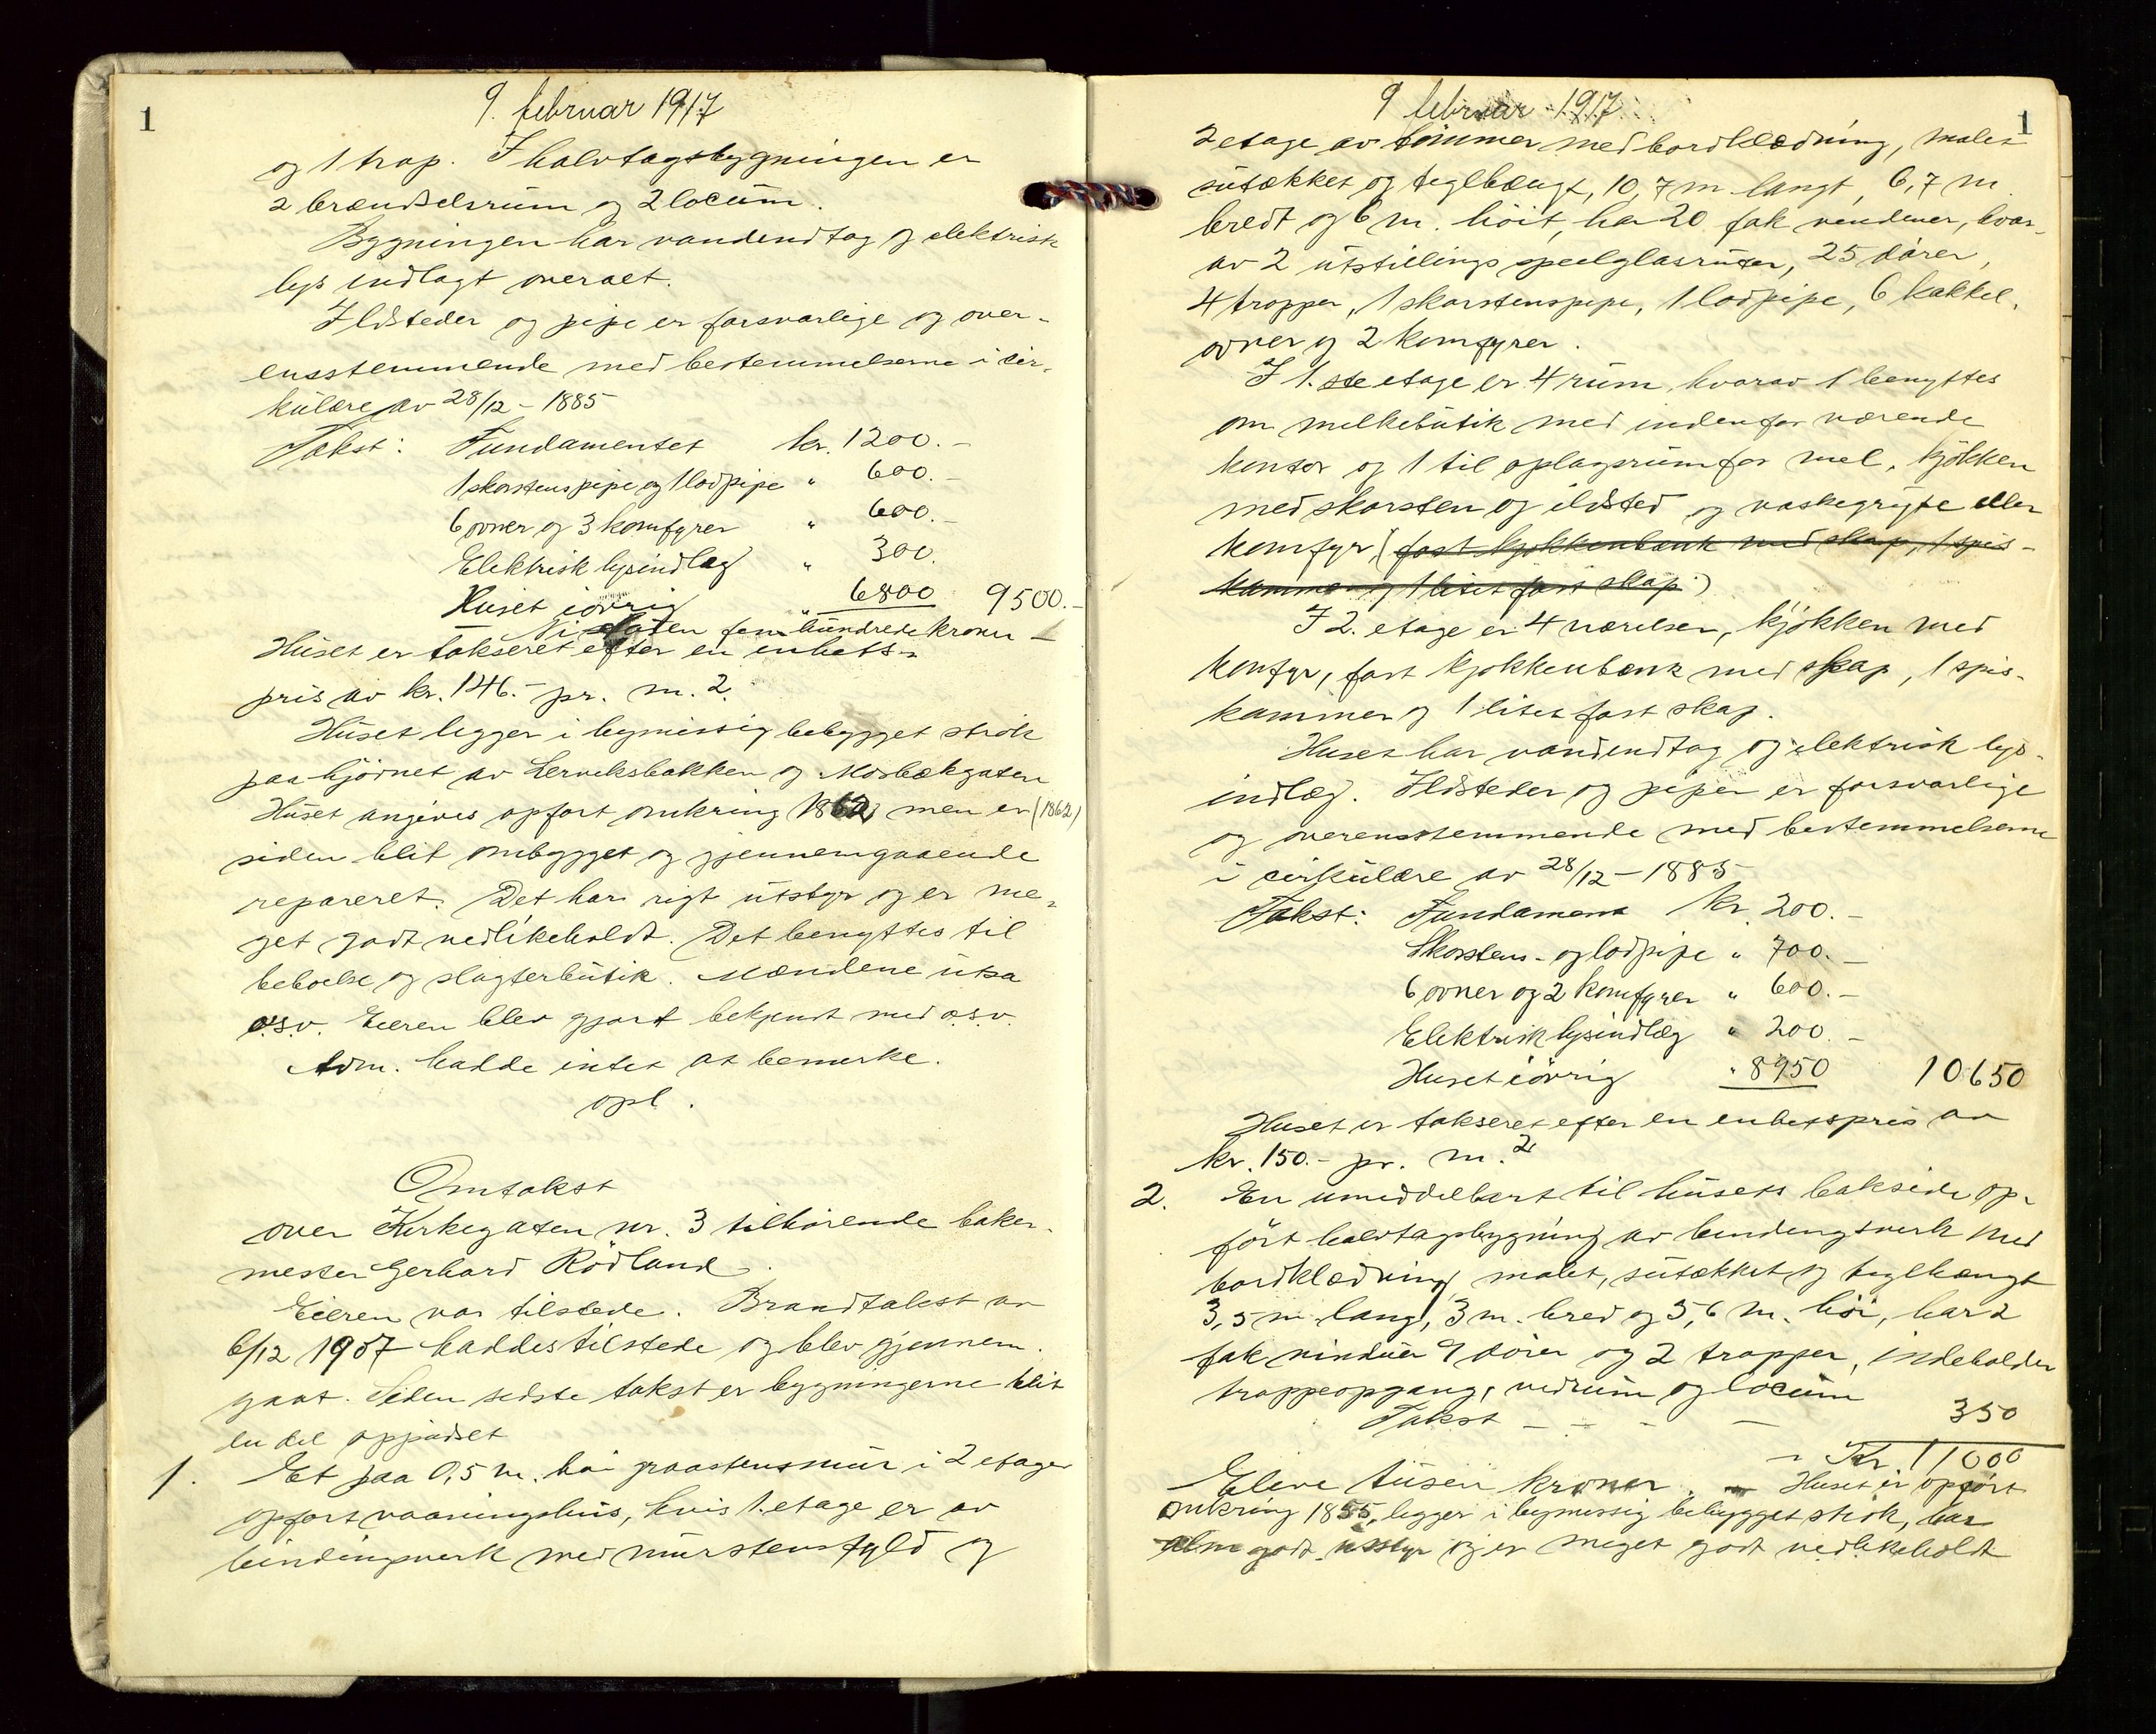 1
9. februar 1917
og 1 trap. I halvtagsbygningen er
2 brændselsrum og 2 locum.
Bygningen har vandindtag og elektrisk
lys indlagt overalt.
Ildsteder og pipe er forsvarlige og over-
ensstemmende med bestemmelserne i cir-
kulære av 28/12 - 1885
Takst: Fundamentet kr. 1200.-
1 skorstenspipe og 1 lodpipe " 600.-
6 ovner og 3 komfyrer " 600.-
Elektrisk lysindlæg " 300.
Huset iøvrig " 6800 9500.-
Ni tusen fem hundrede kroner -
Huset er takseret efter en enhets-
pris av kr. 146.- pr. m.2.
Huset ligger i bymæssig bebygget strøk
paa hjørnet av Lerviksbakken og Mosbækgaten
Huset angives opført omkring 1862 men er (1862)
siden blit ombygget og gjennemgaaende
reparert. Det har rigt utstyr og er me-
get godt vedlikeholdt. Det benyttes til
beboelse og slagterbutik. Mændene utsa
o.s.v. Eieren blev gjort bekjendt med o.s.v.
Adm. hadde intet at bemerke.
opl.
Omtakst
over Kirkegaten nr. 3 tilhørende baker-
mester Gerhard Rödland.
Eieren var tilstede. Brandtakst av
6/12 1907 haddes tilstede og blev gjennem-
gaat. Siden sidste takst er bygningerne blit
en del oppudset
1. Et paa 0,5 m. høi graastensmur i 2 etager
opført vaaningshus, hvis 1. etage er av
bindingsverk med murstensfyld og
1
9 februar 1917
2 etage av tömmer med bordklædning, malet
sutækket og teglhængt, 10,7 m langt, 6,7 m.
bredt og 6 m. höit, har 20 fak vinduer, hvor-
av 2 utstillings speilglasruter, 25 dører,
4 trapper, 1 skorstenspipe, 1 lodpipe, 6 kakkel-
ovner og 2 komfyrer.
I 1.ste etage er 4 rum, hvorav 1 benyttes
om melkebutik med indenfor værende
kontor og 1 til oplagsrum for mel, kjøkken
med skorsten og ildsted og vaskegryte eller
komfyr, (fast kjøkkenbænk med skap, 1 spis-
kammer og 1 litet fast skap.)
I 2. etage er 4 værelser, kjøkken med
komfyr, fast kjøkkenbænk med skap, 1 spis-
kammer og 1 litet fast skap.
Huset har vandindtag og elektrisk lys-
indlæg. Ildsteder og piper er forsvarlige
og overensstemmende med bestemmelserne
i cirkulære av 28/12 - 1885
Takst: Fundament kr. 200.-
Skorstens- og lodpipe " 700.-
6 ovner og 2 komfyrer " 600.-
Elektrisk lysindlæg " 200.-
Huset iövrig " 8950 10650
Huset er takseret efter en enhetspris av
kr. 150.- pr. m.2
2. En umiddelbart til husets bakside op-
fört halvtagsbygning av bindingsverk med
bordklædning malet, sutækket og teglhængt
3,5 m lang, 3 m. bred og 5,6 m. höi, har 2
fak vinduer 9 dörer og 2 trapper, indeholder
trappeopgang, vedrum og locum
Takst - - - - 350
Kr. 11000
Eleve tusen kroner. Huset er opført
omkring 1855, ligger i bymæssig bebygget strök, har
godt utstyr og er meget godt vedlikeholdt